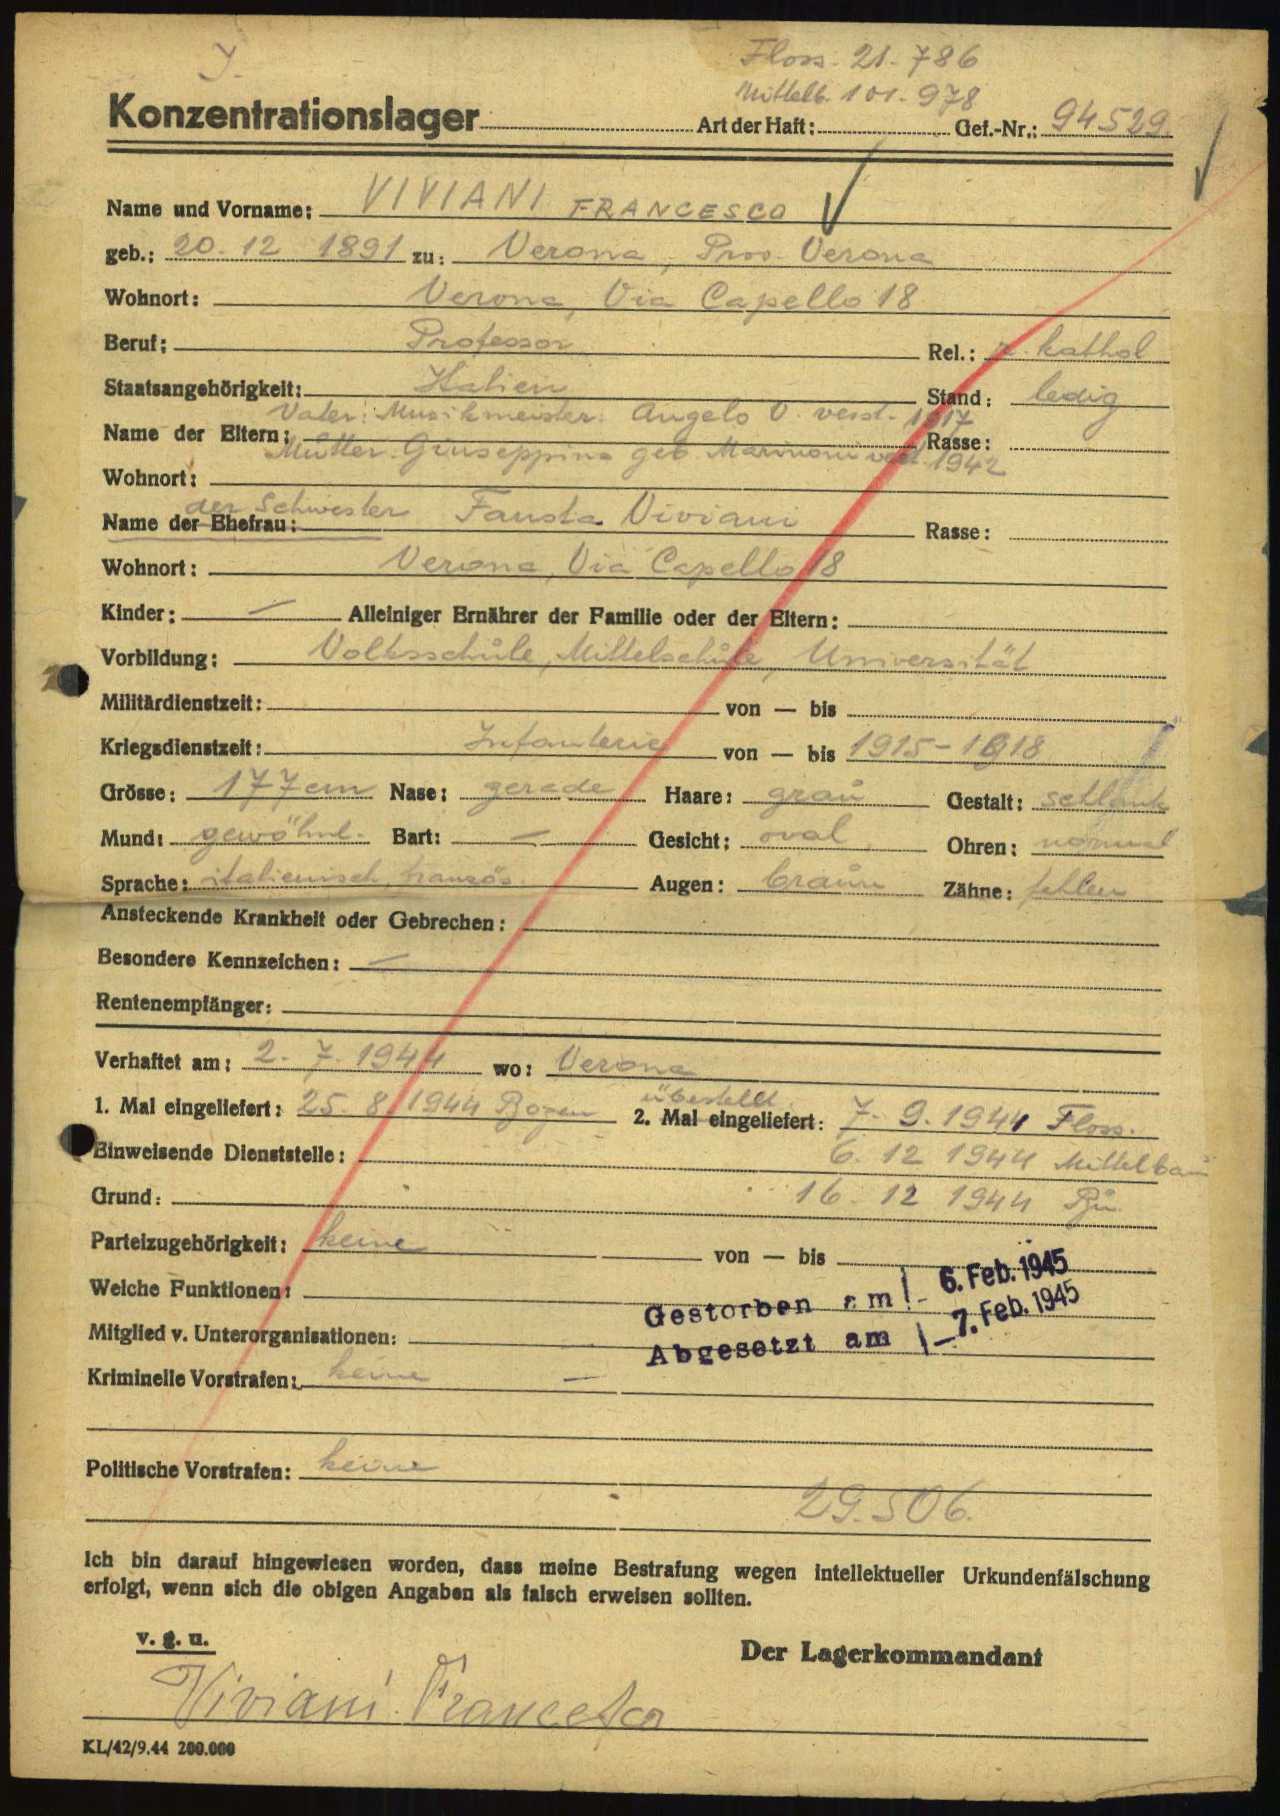 J.
Floss. 21.786
Mittelb. 101.978
Konzentrationslager Art der Haft: Gef.-Nr.: 94529
Name und Vorname: VIVIANI FRANCESCO
geb.: 20. 12 1891 zu: Verona, Prov. Verona
Wohnort: Verona, Via Capello 18
Beruf: Professor Rel.: r. kathol
Staatsangehörigkeit: Italien Stand: ledig
Vater: Musikmeister: Angelo V. verst. 1917
Name der Eltern: Rasse:
Mutter Giuseppina geb. Marinoni verst. 1942
Wohnort:
der Schwester Fausta Viviani
Name der Ehefrau: Rasse:
Wohnort: Verona, Via Capello 18
Kinder: — Alleiniger Ernährer der Familie oder der Eltern:
Vorbildung: Volksschule, Mittelschule, Universität
Militärdienstzeit: von — bis
Kriegsdienstzeit: Infanterie von — bis 1915-1918
Grösse: 177 cm Nase: gerade Haare: grau Gestalt: schlank
Mund: gewöhnl. Bart: — Gesicht: oval Ohren: normal
Sprache: italienisch, französ. Augen: braun Zähne: fehlen
Ansteckende Krankheit oder Gebrechen:
Besondere Kennzeichen: —
Rentenempfänger:
Verhaftet am: 2. 7. 1944 wo: Verona
überstellt
1. Mal eingeliefert: 25. 8. 1944 Bozen 2. Mal eingeliefert: 7. 9. 1944 Floss.
Einweisende Dienststelle: 6. 12 1944 Mittelbau
Grund: 16. 12 1944 Bu.
Parteizugehörigkeit: keine von — bis
Welche Funktionen:
Gestorben am 6. Feb. 1945
Mitglied v. Unterorganisationen:
Abgesetzt am 7. Feb. 1945
Kriminelle Vorstrafen: keine —
Politische Vorstrafen: keine
29.506.
Ich bin darauf hingewiesen worden, dass meine Bestrafung wegen intellektueller Urkundenfälschung
erfolgt, wenn sich die obigen Angaben als falsch erweisen sollten.
v. g. u.
Der Lagerkommandant
Viviani Francesco
KL/42/9.44 200.000